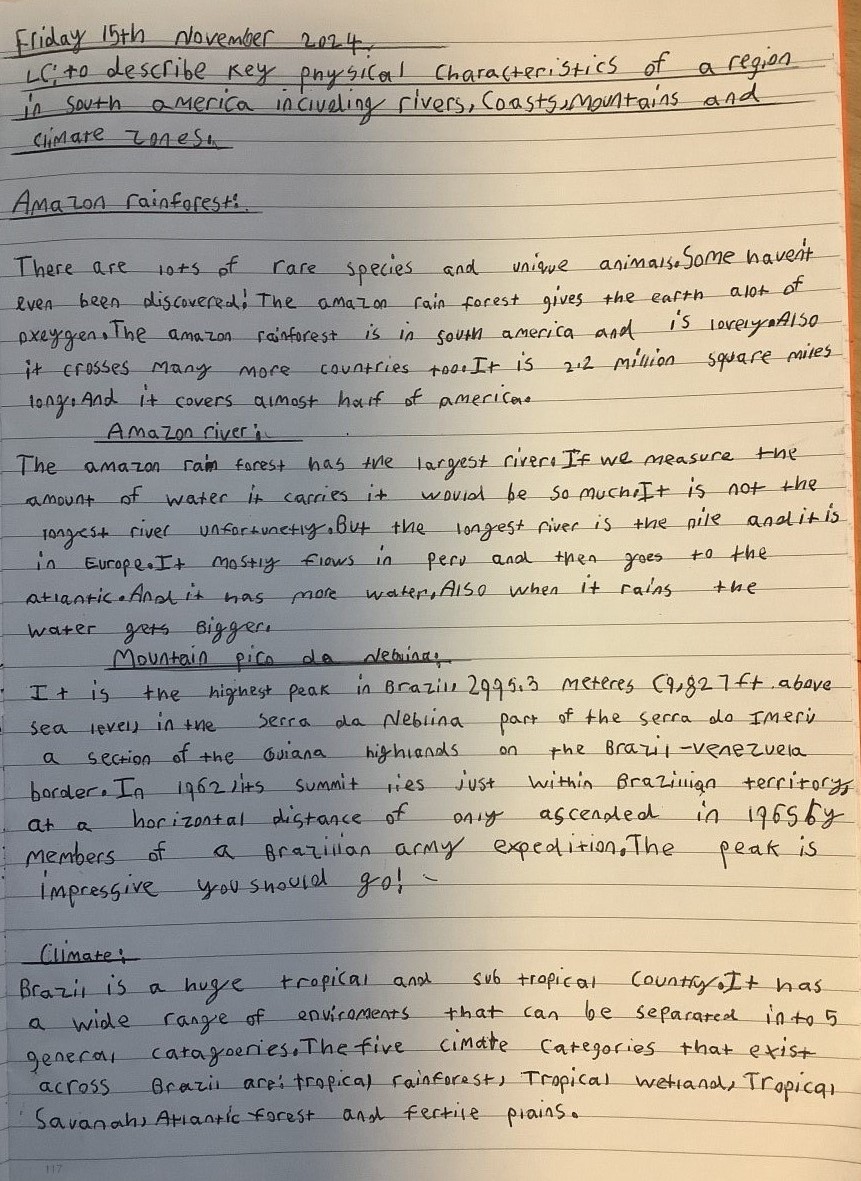 Friday 15th November 2024.
LC: to describe key physical characteristics of a region
in south america including rivers, Coasts, Mountains and
climate zones.
Amazon rainforest:
There are lots of rare species and unique animals. Some haven't
even been discovered! The amazon rain forest gives the earth alot of
oxeygen. The amazon rainforest is in south america and is lovely. Also
it crosses many more countries too. It is 2.2 million square miles
long. And it covers almost half of america.
Amazon river:
The amazon rain forest has the largest river. If we measure the
amount of water it carries it would be so much. It is not the
longest river unfortunetly. But the longest river is the nile and it is
in Europe. It mostly flows in peru and then goes to the
atlantic. And it has more water, Also when it rains the
water gets Bigger.
Mountain pico da Neblina:
It is the highest peak in Brazil, 2995.3 meteres (9,827ft. above
sea level, in the Serra da Neblina part of the serra do Imeri
a section of the Guiana highlands on the Brazil-venezuela
border. In 1962, its summit lies just within Brazilian territory,
at a horizontal distance of only ascended in 1965 by
members of a Brazilian army expedition. The peak is
impressive you should go!
Climate:
Brazil is a huge tropical and sub tropical Country. It has
a wide range of enviroments that can be separated into 5
general catagoeries. The five cimate Categories that exist
across Brazil are: tropical rainforest, Tropical wetland, Tropical
Savanah, Atlantic forest and fertile plains.
117